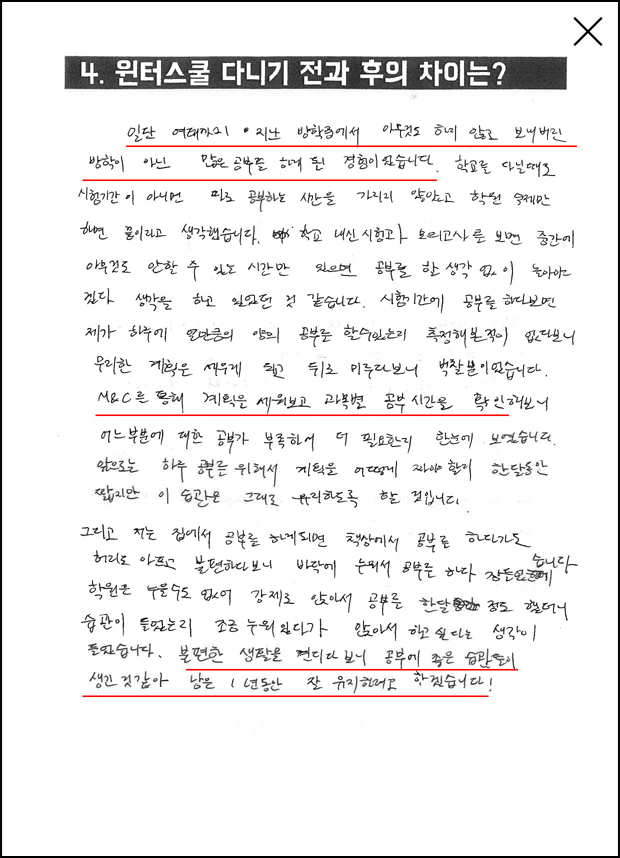 4. 윈터스쿨 다니기 전과 후의 차이는?
일단 여태까지 지난 방학중에서 아무것도 하지 않고 보내버린
방학이 아닌 많은 공부를 하게 된 경험이었습니다. 학교를 다닐때도
시험기간이 아니면 따로 공부하는 시간을 가지지 않았고 학원 숙제만
하면 끝이라고 생각했습니다. 학교 내신시험과 모의고사를 보면 중간에
아무것도 안한 후 있는 시간만 있으면 공부를 할 생각 없이 놀아야
겠다 생각을 하고 있었던 것 같습니다. 시험기간에 공부를 하다보면
제가 하루에 얼만큼의 양의 공부를 할수있는지 측정해본적이 없다보니
무리한 계획을 세우게 되고 뒤로 미루다보니 벅찰뿐이었습니다.
M&C를 통해 계획을 세워보고 과목별 공부시간을 확인해보니
어느부분에 대한 공부가 부족하여 더 필요한지 한눈에 보였습니다.
앞으로는 하루 공부를 위해서 계획을 어떻게 짜야 할지 한달동안
짧지만 이 습관은 그대로 유지하도록 할 것입니다.
그리고 저는 집에서 공부를 하게되면 책상에서 공부를 하다가도
허리도 아프고 불편하다보니 바닥에 누워서 공부를 하다 잠든 습니다
학원은 누울수도 없어 강제로 앉아서 공부를 한달 정도 했더니
습관이 들었는지 조금 누워있다가 앉아서 하고 싶다는 생각이
들었습니다. 불편한 생활을 견디다보니 공부에 좋은 습관들이
생긴것같아 남은 1년동안 잘 유지하려고 하겠습니다!